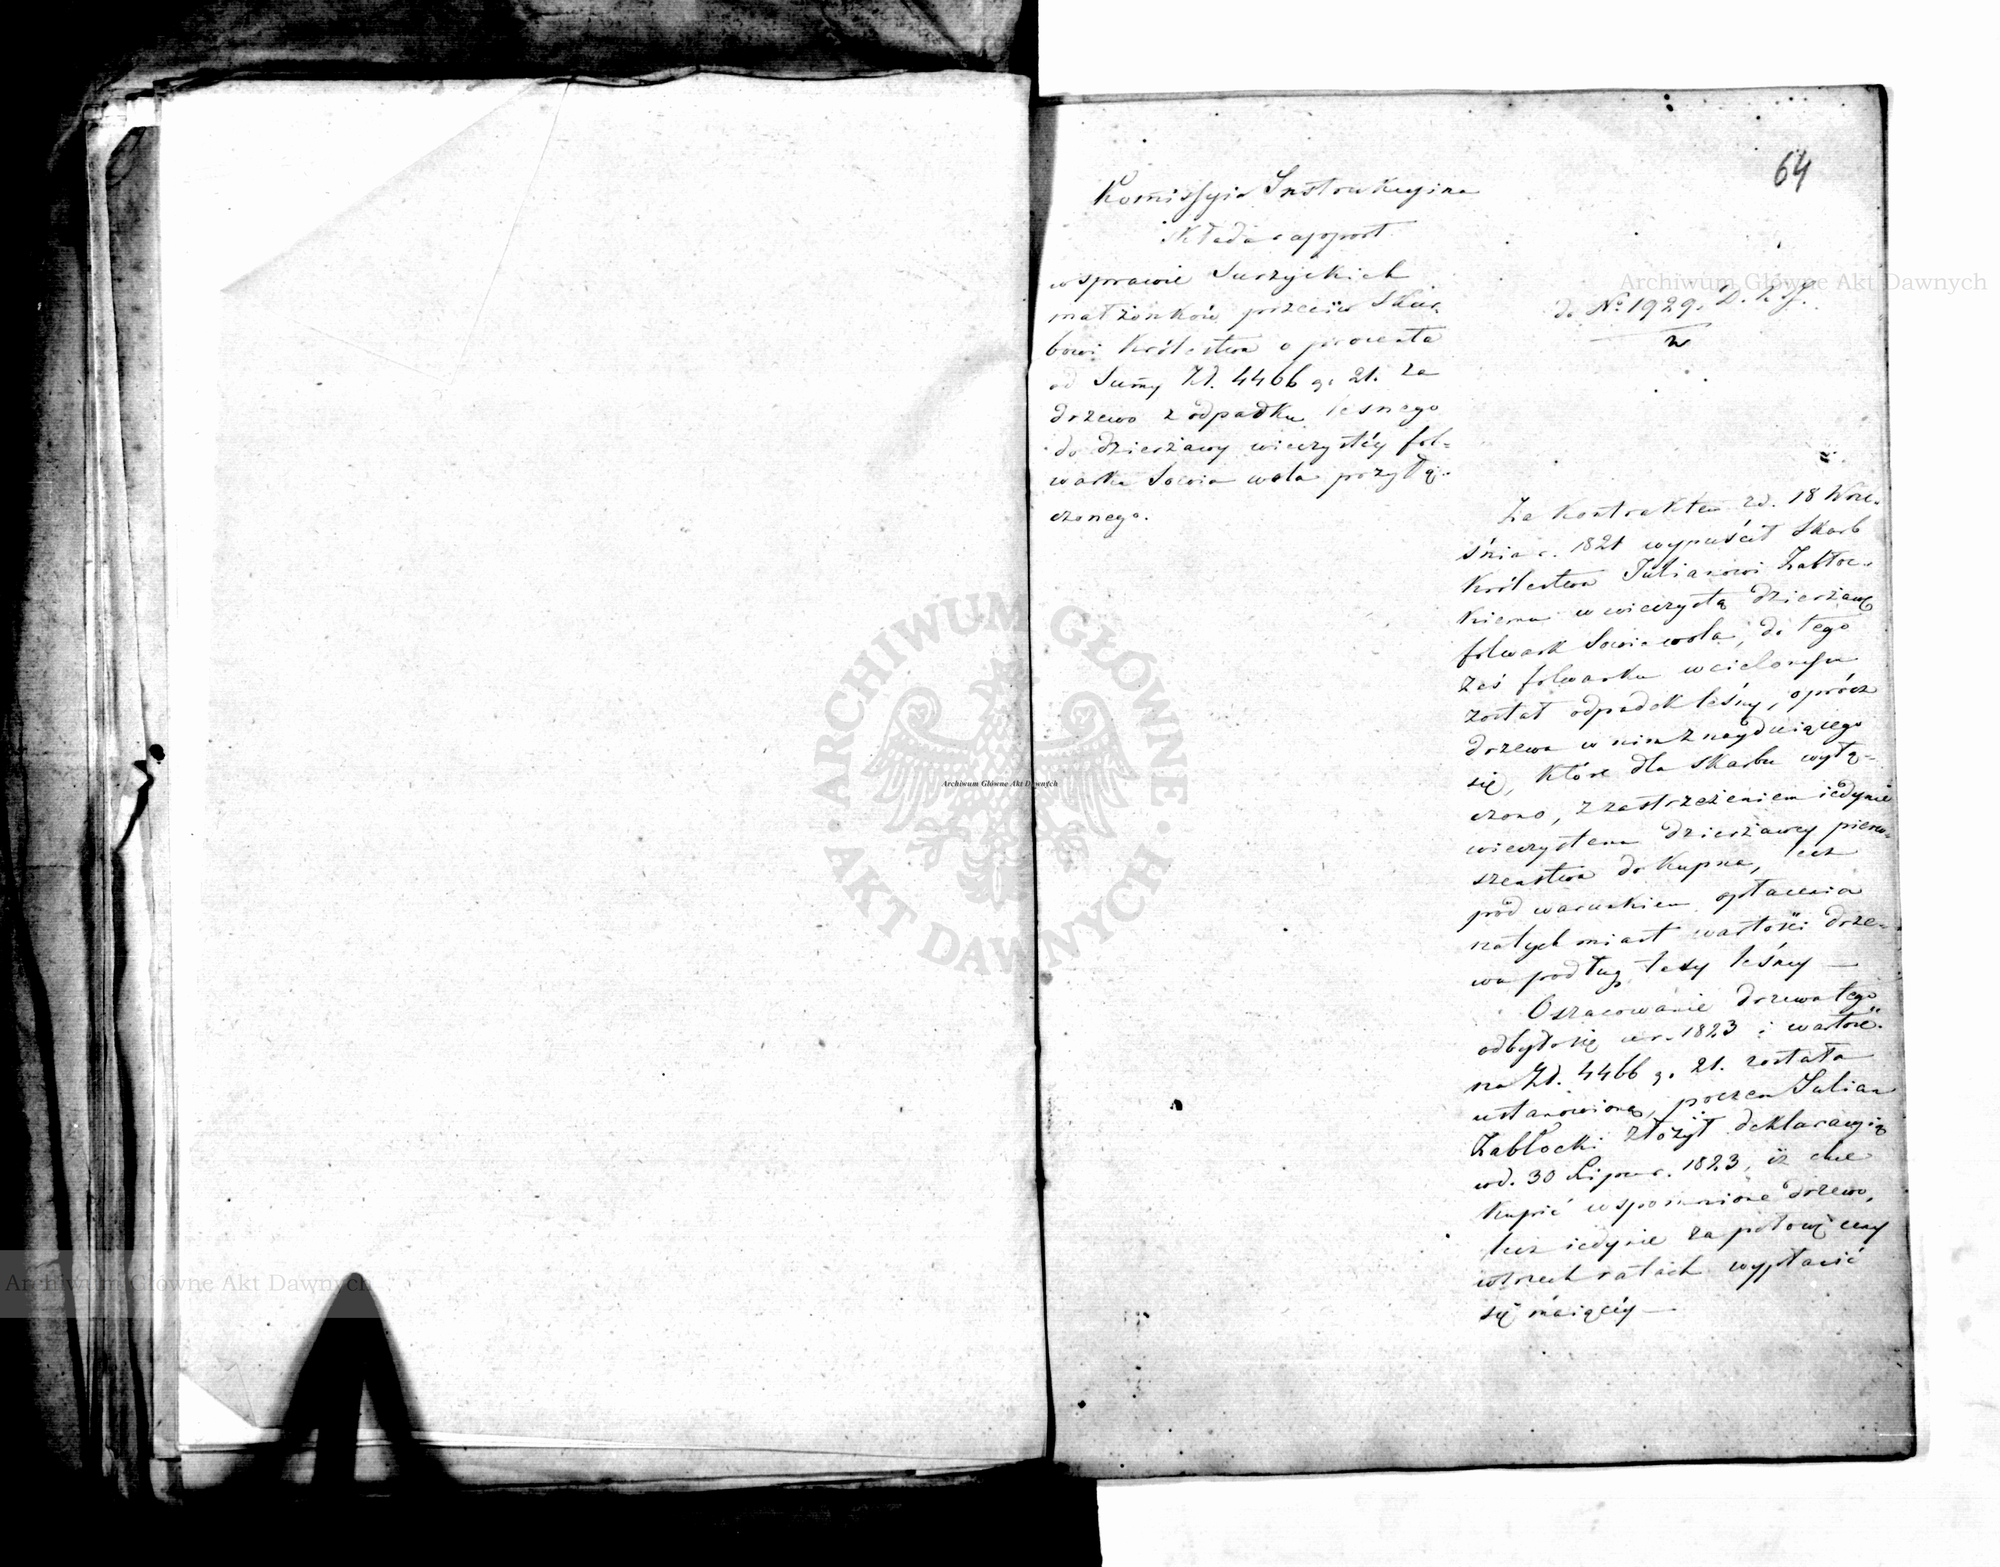 64
Kommissyia Instrukcyina
składa rapport
w sprawie Surzyckich
małżonków przeciw Skar-
bowi Królestwa o procenta
od Summy Zł. 4466 g. 21. za
drzewo z odpadku lesnego
do dzierżawy wieczystéy fol=
warku Sowia wola przyłą-
czonego.
do No 1929. D.
Za kontraktem zd. 18 Wrze-
śnia r. 1821 wypuścił Skarb
Królestwa Julianowi Zabłoc-
kiemu w wieczystą dzierżawę
folwark Sowia wola, do tego
zaś folwarku wcielonym
został odpadek leśny, oprócz
drzewa w nim znayduiącego
się, które dla skarbu wyłą=
czono, z zastrzeżeniem iedynie
wieczystemu dzierżawcy pierw-
szeństwa do kupna, lecz
pod warunkiem opłacenia
natychmiast wartości drze-
wa podług taxy leśney —
Oszacowanie drzewa tego
odbyło się w r. 1823 i wartość
na Zł. 4466 g. 21. została
ustanowioną, poczem Julian
Zabłocki złożył deklaracyią
w d. 30 Lipca r. 1823, iż chce
kupić wspomnione drzewo,
lecz iedynie za połowę ceny
w trzech ratach wypłacić
się maiącéy —
Archiwum Główne Akt Dawnych
Archiwum Główne Akt Dawnych
Archiwum Główne Akt Dawnych
ARCHIWUM GŁÓWNE
AKT DAWNYCH